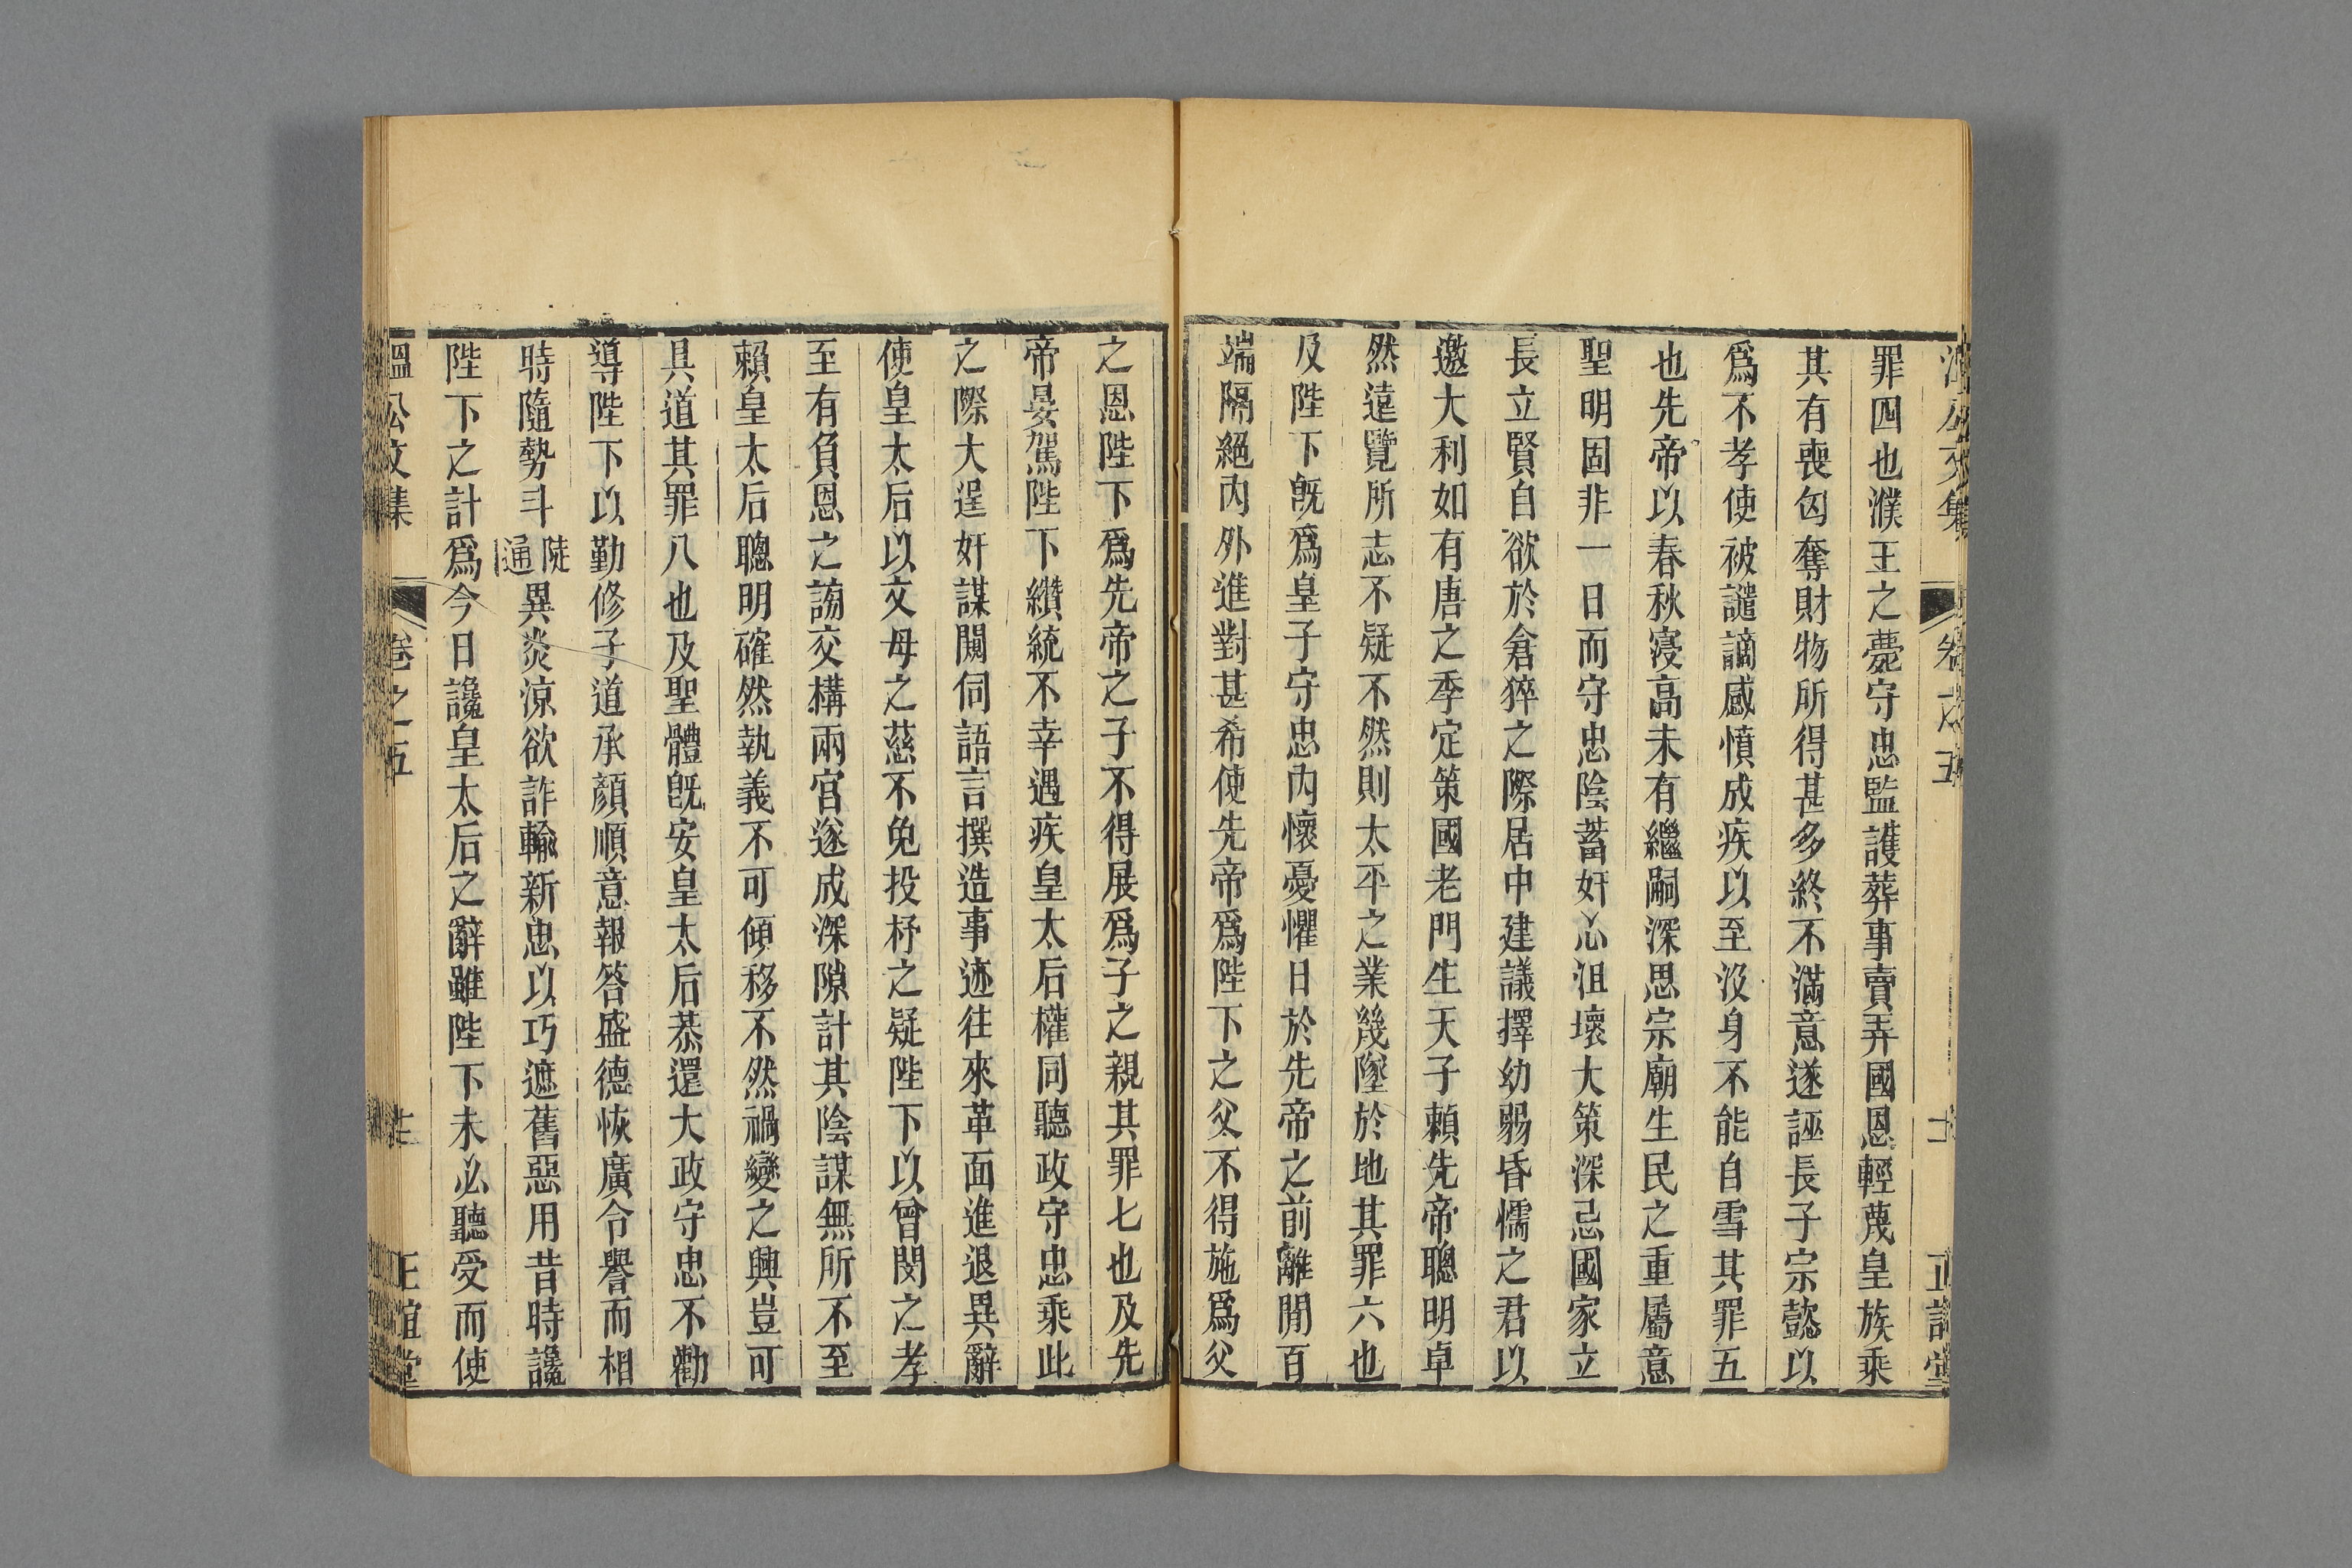 溫公文集 卷之五 正誼堂
罪四也濮王之薨守忠監護葬事賣弄國恩輕蔑皇族乘
其有喪匃奪財物所得甚多終不滿意遂誣長子宗懿以
爲不孝使被譴謫感憤成疾以至沒身不能自雪其罪五
也先帝以春秋寖高未有繼嗣深思宗廟生民之重屬意
聖明固非一日而守忠陰蓄奸心沮壞大策深忌國家立
長立賢自欲於倉猝之際居中建議擇幼弱昏懦之君以
邀大利如有唐之季定策國老門生天子賴先帝聰明卓
然遠覽所志不疑不然則太平之業幾墜於地其罪六也
及陛下旣爲皇子守忠內懷憂懼日於先帝之前離間百
端隔絕內外進對甚希使先帝爲陛下之父不得施爲父
之恩陛下爲先帝之子不得展爲子之親其罪七也及先
帝晏駕陛下纘統不幸遇疾皇太后權同聽政守忠乘此
之際大逞奸謀闚伺語言撰造事迹往來革面進退異辭
使皇太后以文母之慈不免投杼之疑陛下以曾閔之孝
至有負恩之謗交構兩宮遂成深隙計其陰謀無所不至
賴皇太后聰明確然執義不可傾移不然禍變之興豈可
具道其罪八也及聖體旣安皇太后恭還大政守忠不勸
導陛下以勤修子道承顏順意報答盛德恢廣令譽而相
時隨勢斗陡通異炎涼欲詐輸新忠以巧遮舊惡用昔時讒
陛下之計爲今日讒皇太后之辭雖陛下未必聽受而使
溫公文集 卷之五 正誼堂